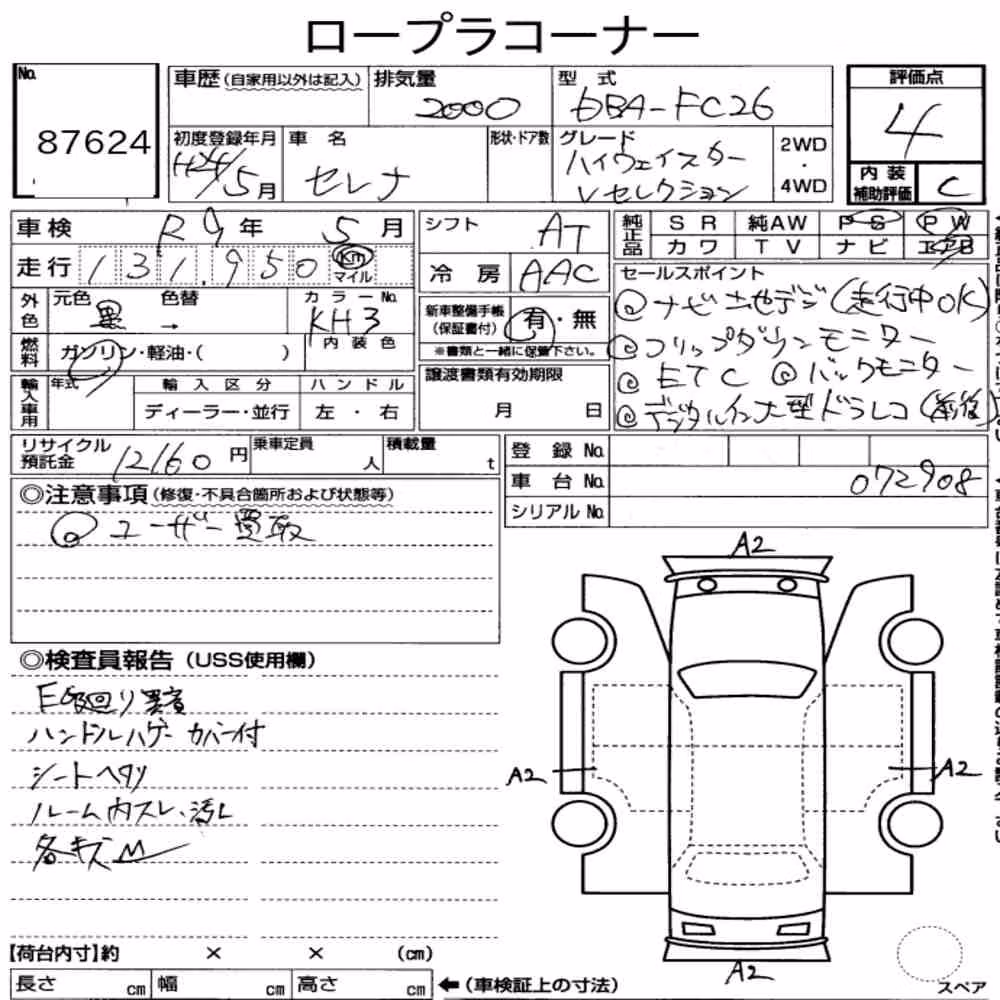 ロープラコーナー
No.
87624
車歴(自家用以外は記入)
排気量
2000
型 式
DBA-FC26
評価点
4
内装補助評価
C
初度登録年月
H24/5月
車 名
セレナ
形状・ドア数
グレード
ハイウェイスター
Vセレクション
2WD
・
4WD
車検
R9年 5月
走行
131,950
km
マイル
シフト
AT
冷 房
AAC
純正品
SR 純AW PS PW
カワ TV ナビ エアB
セールスポイント
◎ナビ 地デジ(走行中OK)
◎フリップダウンモニター
◎ETC ◎バックモニター
◎デジタルインナー型ドラレコ(前後)
外色
元色
黒
色替
→
カラーNo.
KH3
内装色
燃料
ガソリン・軽油・( )
新車整備手帳
(保証書付)
有・無
※書類と一緒に保管下さい。
輸入車用
年式
輸入区分
ハンドル
ディーラー・並行
左・右
譲渡書類有効期限
月 日
リサイクル預託金
12160円
乗車定員
人
積載量
t
登 録 No.
車 台 No.
072908
シリアルNo.
◎注意事項(修復・不具合箇所および状態等)
◎ユーザー買取
◎検査員報告(USS使用欄)
ハンドルハゲ カバー付
シートヘタリ
ルーム内スレ・汚れ
各キズ
A2
A2
A2
A2
【荷台内寸】約 × × (cm)
長さ cm
幅 cm
高さ cm
←(車検証上の寸法)
スペア